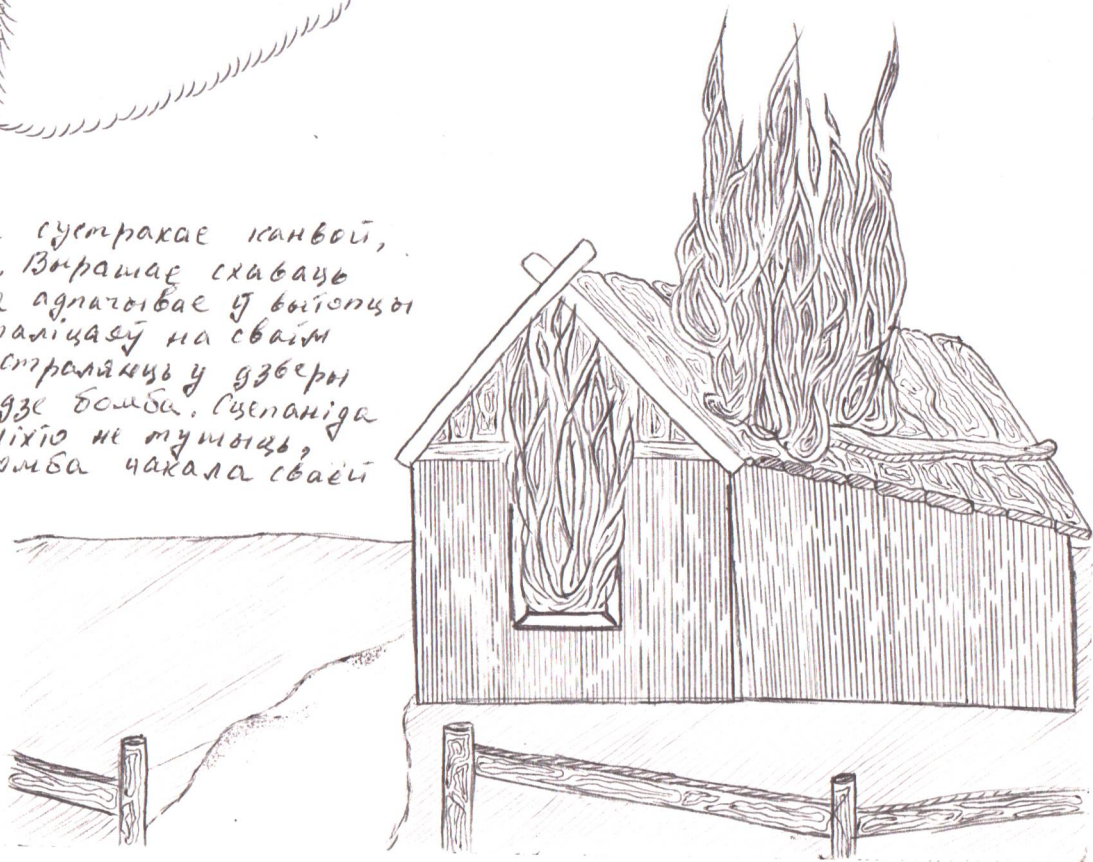 сустракае канвой,
Вырашае схаваць
адпачывае ў вытопцы
паліцаяў на сваім
страляюць у дзверы
дзе бомба. Сцепаніда
ніхто не тушыць,
бомба чакала сваёй